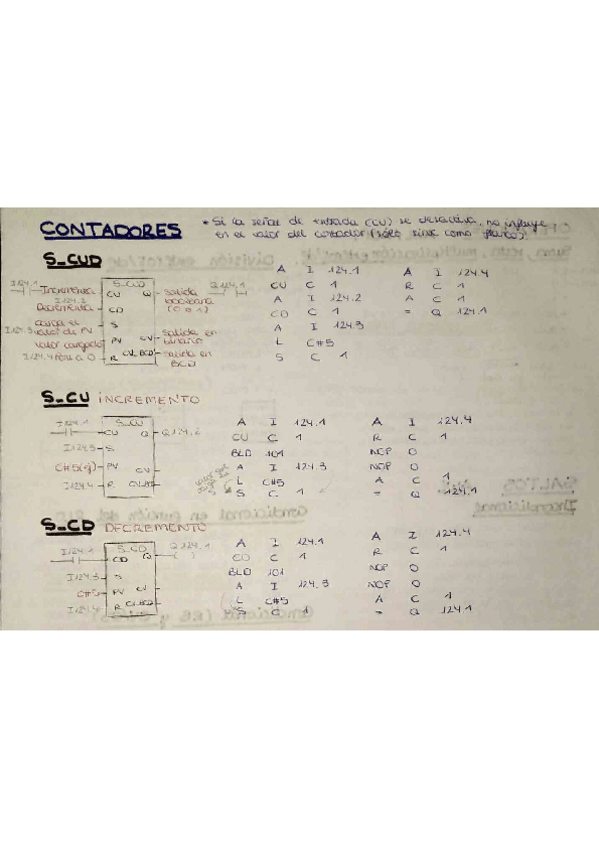 CONTADORES
* Si la señal de entrada (CU) se desactiva, no influye
en el valor del contador (sólo sirve como flanco).
S_CUD
I124.1 Incrementa
I124.2
Decrementa
carga el
I124.3 valor de PV
valor cargado
I124.4 Pone a 0
S_CUD
CU Q
CD
S
PV CV
R CV_BCD
salida
booleana
(0 o 1)
Q124.1
salida en
binario
salida en
BCD
A I 124.1
CU C 1
A I 124.2
CD C 1
A I 124.3
L C#5
S C 1
A I 124.4
R C 1
A C 1
= Q 124.1
S_CU INCREMENTO
I124.1
S_CU
CU Q Q124.2
I124.3 S
C#5 PV CV
I124.4 R CV_BCD
A I 124.1
CU C 1
BLD 101
A I 124.3
L C#5
S C 1
A I 124.4
R C 1
NOP 0
NOP 0
A C 1
= Q 124.1
S_CD DECREMENTO
I124.1
S_CD Q124.1
CD Q ( )
I124.3 S
C#5 PV CV
I124.4 R CV_BCD
A I 124.1
CD C 1
BLD 101
A I 124.3
L C#5
S C 1
A I 124.4
R C 1
NOP 0
NOP 0
A C 1
= Q 124.1